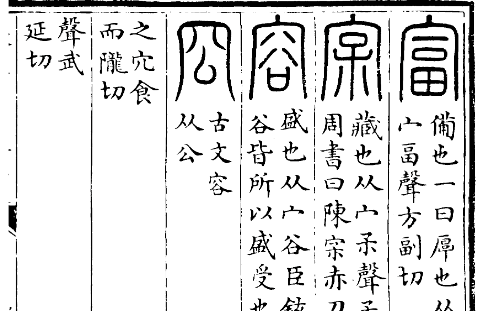 富
備也一曰厚也从
宀畐聲方副切
宲
藏也从宀呆聲呆
周書曰陳宲赤刀
容
盛也从宀谷臣鉉
谷皆所以盛受也
㝐
古文容
从公
之宂食
而隴切
聲武
延切